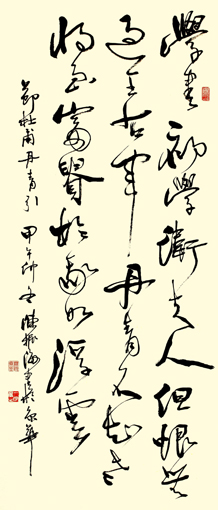 學書初學衛夫人但恨無
過王右軍丹青不知老
將至富貴於我如浮雲
節杜甫丹青引甲午